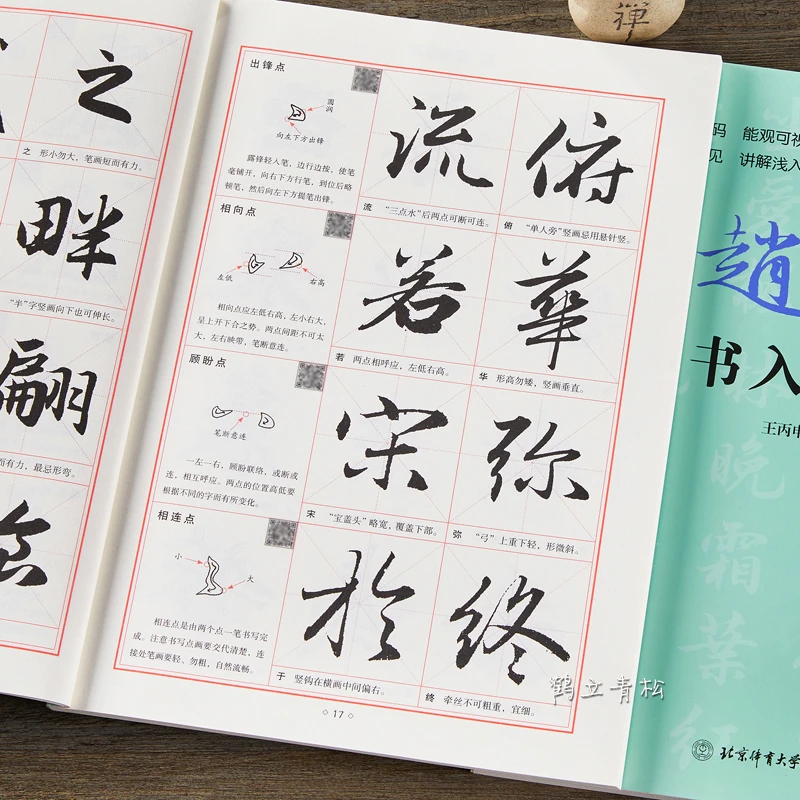 之
之 形小勿大，笔画短而有力。
畔
“半”字竖画向下也可伸长。
翩
而有力，最忌形弯。
念
出锋点
圆润
向左下方出锋
露锋轻入笔，边行边按，使笔
毫铺开，向右下方行笔，到位后略
顿笔，然后向左下方提笔出锋。
流
流 “三点水”后两点可断可连。
俯
俯 “单人旁”竖画忌用悬针竖。
相向点
左低
右高
相向点应左低右高，左小右大，
呈上开下合之势。两点间距不可太
大，左右映带，笔断意连。
若
若 两点相呼应，左低右高。
華
华 形高勿矮，竖画垂直。
顾盼点
笔断意连
一左一右，顾盼联络，或断或
连，相互呼应。两点的位置高低要
根据不同的字而有所变化。
宋
宋 “宝盖头”略宽，覆盖下部。
弥
弥 “弓”上重下轻，形微斜。
相连点
小
大
相连点是由两个点一笔书写完
成。注意书写点画要交代清楚，连
接处笔画要轻、勿粗，自然流畅。
於
于 竖钩在横画中间偏右。
终
终 牵丝不可粗重，宜细。
17
禅
码 能观可视
见 讲解浅入
趙
书入
王丙申
晚
霜
葉
红
北京体育大学
鹤立青松